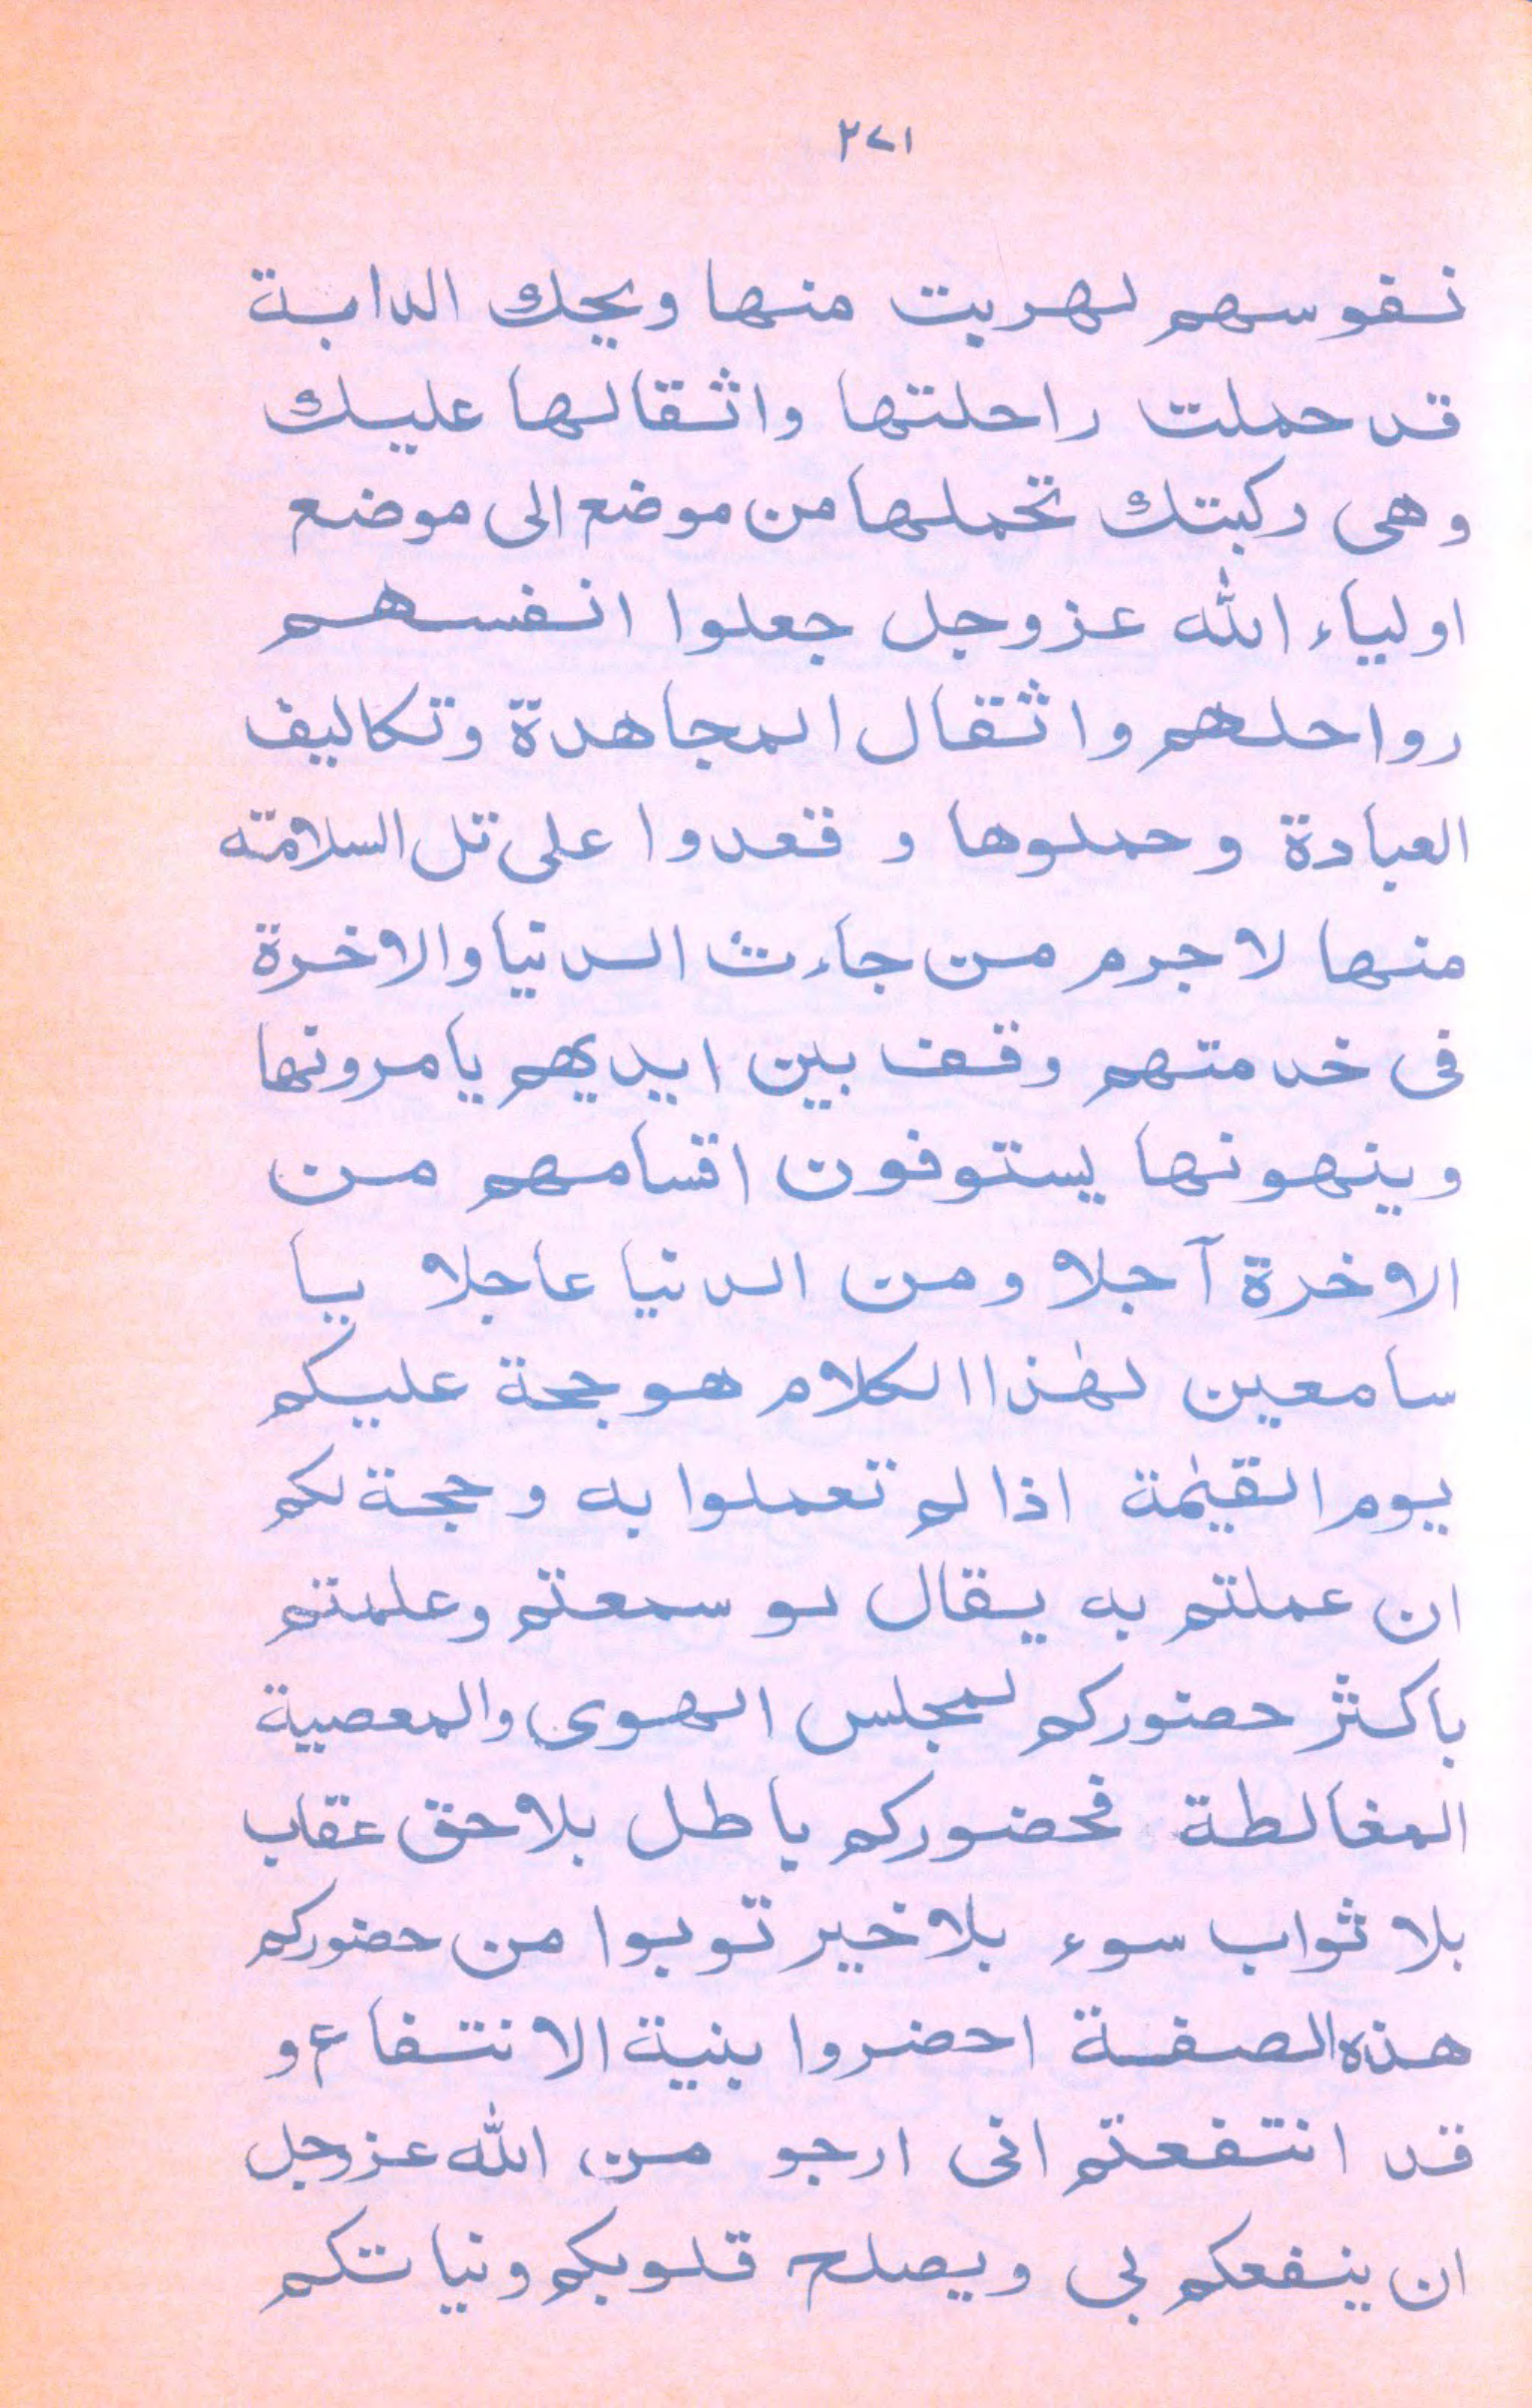 ٢٧١
نفوسهم لهربت منها ويحك الدابة
قد حملت راحلتها واثقالها عليك
وهى ركبتك تحملها من موضع الى موضع
اولياء الله عزوجل جعلوا انفسهم
رواحلهم واثقال المجاهدة وتكاليف
العبادة وحملوها و قعدوا على تل السلامته
منها لاجرم من جاءت الدنيا والاخرة
فى خدمتهم وقف بين ايديهم يامرونها
وينهونها يستوفون اقسامهم من
الاخرة آجلا ومن الدنيا عاجلا يا
سامعين لهٰذا الكلام هو حجة عليكم
يوم القيٰمة اذا لم تعملوا به وحجة لكم
ان عملتم به يقال لو سمعتم وعلمتم
باكثر حضوركم لمجلس الهوى والمعصية
المغالطة فحضوركم باطل بلاحق عقاب
بلا ثواب سوء بلاخير توبوا من حضوركم
هذه الصفة احضروا بنية الانتفاع و
قد انتفعتم انى ارجو من الله عزوجل
ان ينفعكم بى ويصلح قلوبكم ونياتكم